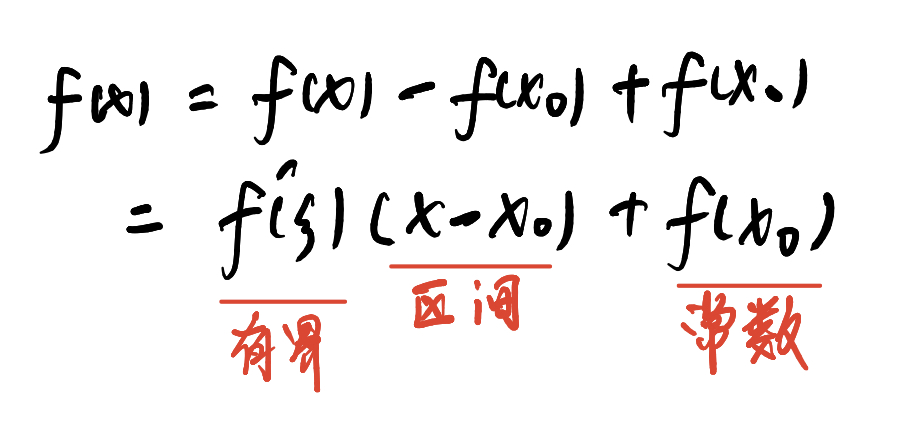 f(x) = f(x) - f(x₀) + f(x₀)
= f'(ξ)(x-x₀) + f(x₀)
有界 区间 常数